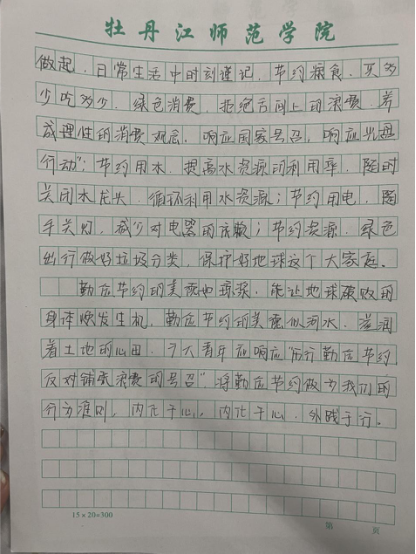 牡丹江师范学院
做起,日常生活中时刻谨记,节约粮食,买多
少吃多少,绿色消费,拒绝舌尖上的浪费,养
成理性的消费观念,响应国家号召,响应光盘
行动";节约用水,提高水资源的利用率,随时
关闭水龙头,循环利用水资源;节约用电,随
手关灯,减少对电器的依赖;节约资源,绿色
出行做好垃圾分类,保护好地球这个大家庭。
勤俭节约的美德如绵柔,能让地球疲败的
身体焕发生机,勤俭节约的美德似河水,滋润
着土地的心田,广大青年应响应"厉行勤俭节约
反对铺张浪费的号召",将勤俭节约做为我们的
行为准则,内化于心,内化于心,外践于行。
15×20=300
第 页